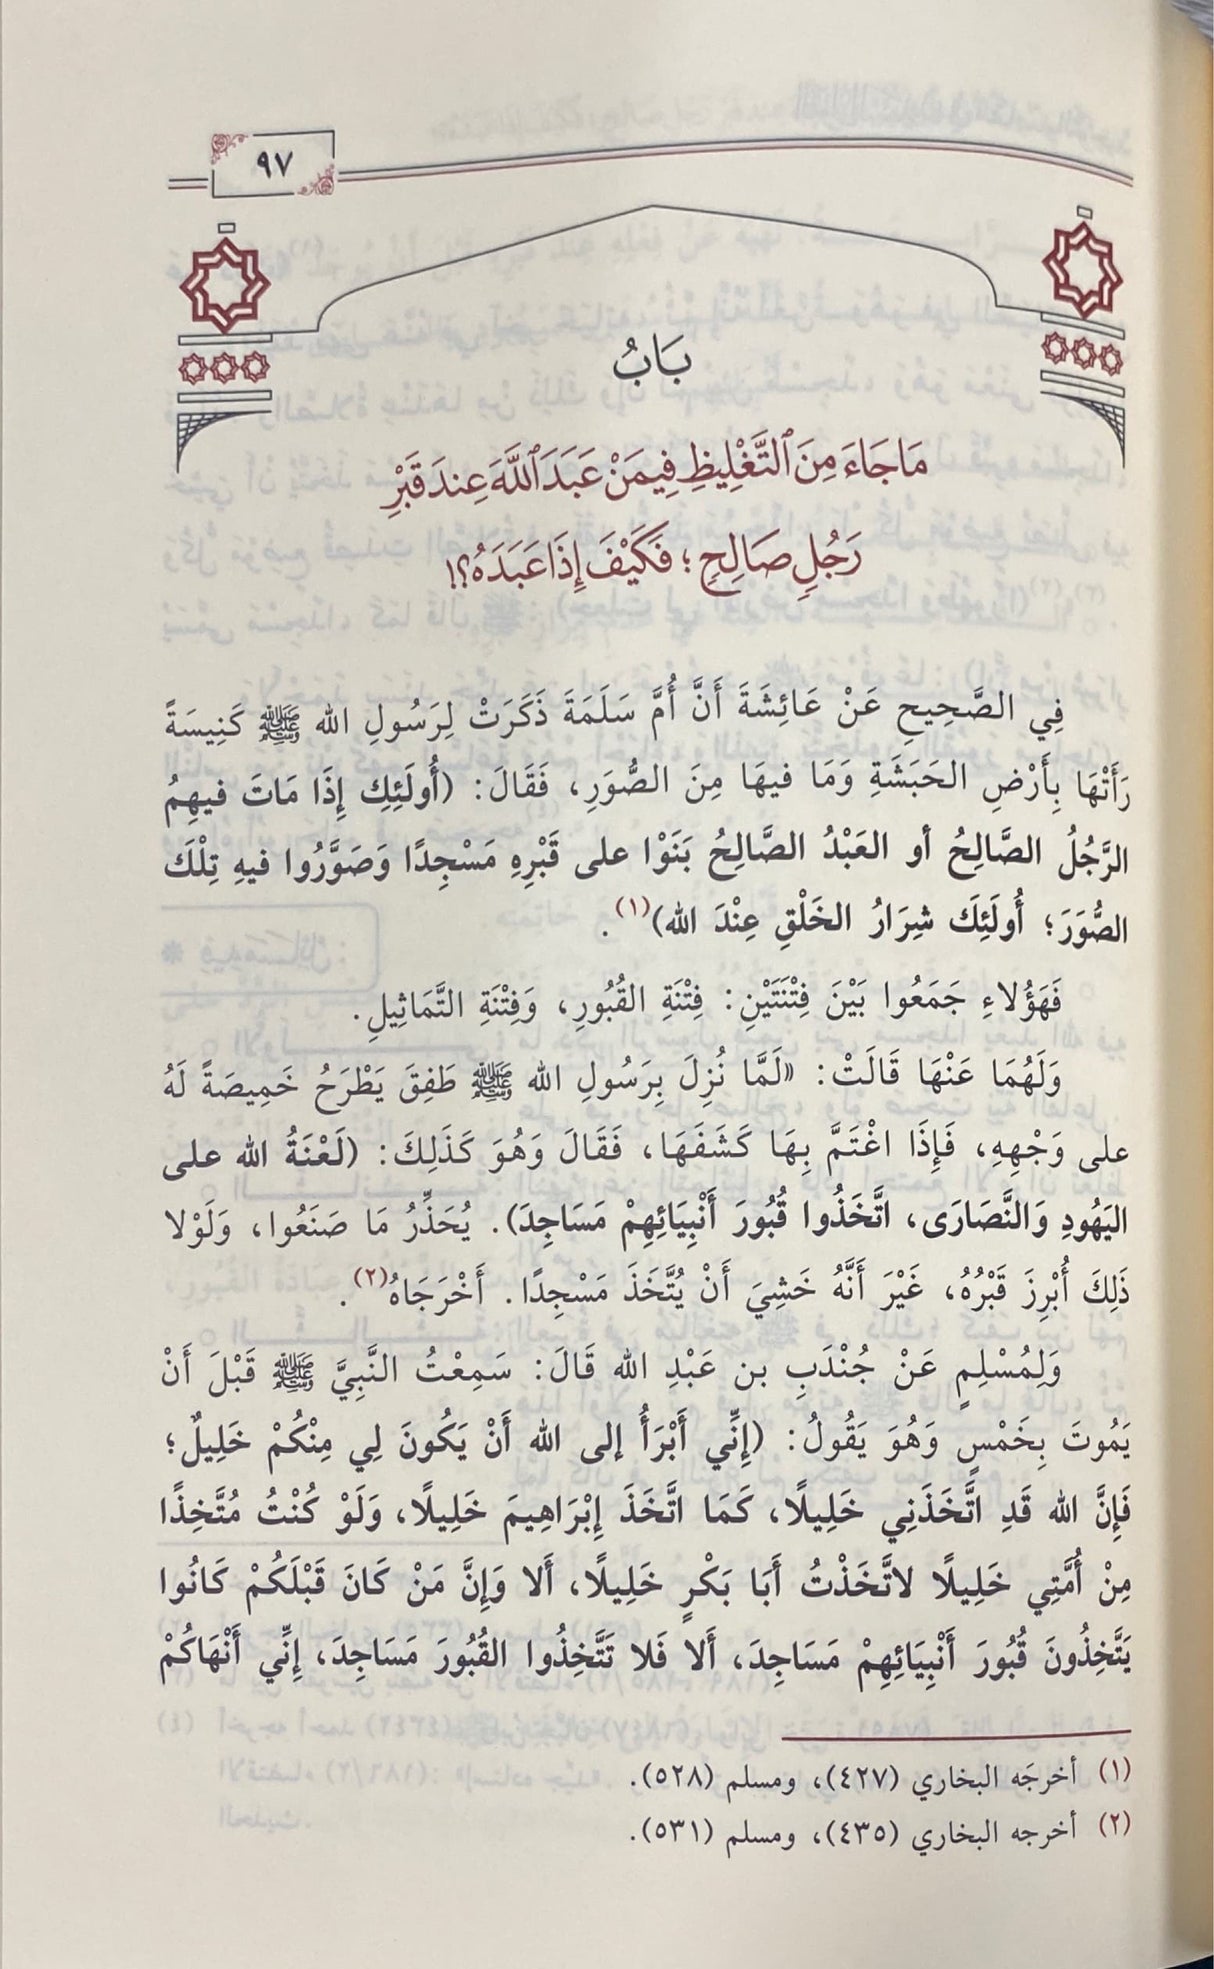 ٩٧
بَابُ
مَا جَاءَ مِنَ ٱلتَّغْلِيظِ فِيمَنْ عَبَدَ ٱللَّهَ عِندَ قَبْرِ
رَجُلٍ صَالِحٍ ؛ فَكَيْفَ إِذَا عَبَدَهُ؟!
فِي الصَّحِيحِ عَنْ عَائِشَةَ أَنَّ أُمَّ سَلَمَةَ ذَكَرَتْ لِرَسُولِ الله ﷺ كَنِيسَةً
رَأَتْهَا بِأَرْضِ الحَبَشَةِ وَمَا فيهَا مِنَ الصُّوَرِ، فَقَالَ: (أُولَئِكِ إِذَا مَاتَ فيهِمُ
الرَّجُلُ الصَّالِحُ أو العَبْدُ الصَّالِحُ بَنَوْا على قَبْرِهِ مَسْجِدًا وَصَوَّرُوا فيهِ تِلْكَ
الصُّوَرَ؛ أُولَئِكَ شِرَارُ الخَلْقِ عِنْدَ الله)(١).
فَهَؤُلاءِ جَمَعُوا بَيْنَ فِتْنَتَيْنِ: فِتْنَةِ القُبُورِ، وَفِتْنَةِ التَّمَاثِيلِ.
وَلَهُمَا عَنْهَا قَالَتْ: «لَمَّا نُزِلَ بِرَسُولِ الله ﷺ طَفِقَ يَطْرَحُ خَمِيصَةً لَهُ
على وَجْهِهِ، فَإِذَا اغْتَمَّ بِهَا كَشَفَهَا، فَقَالَ وَهُوَ كَذَلِكَ: (لَعْنَةُ الله على
اليَهُودِ وَالنَّصَارَى، اتَّخَذُوا قُبُورَ أَنْبِيَائِهِمْ مَسَاجِدَ). يُحَذِّرُ مَا صَنَعُوا، وَلَوْلا
ذَلِكَ أُبْرِزَ قَبْرُهُ، غَيْرَ أَنَّهُ خَشِيَ أَنْ يُتَّخَذَ مَسْجِدًا. أَخْرَجَاهُ(٢).
وَلِمُسْلِمٍ عَنْ جُنْدَبِ بن عَبْدِ الله قَالَ: سَمِعْتُ النَّبِيَّ ﷺ قَبْلَ أَنْ
يَمُوتَ بِخَمْسٍ وَهُوَ يَقُولُ: (إِنِّي أَبْرَأُ إلى الله أَنْ يَكُونَ لِي مِنْكُمْ خَلِيلٌ؛
فَإِنَّ الله قَدِ اتَّخَذَنِي خَلِيلًا، كَمَا اتَّخَذَ إِبْرَاهِيمَ خَلِيلًا، وَلَوْ كُنْتُ مُتَّخِذًا
مِنْ أُمَّتِي خَلِيلًا لاتَّخَذْتُ أَبَا بَكْرٍ خَلِيلًا، أَلا وَإِنَّ مَنْ كَانَ قَبْلَكُمْ كَانُوا
يَتَّخِذُونَ قُبُورَ أَنْبِيَائِهِمْ مَسَاجِدَ، أَلا فَلا تَتَّخِذُوا القُبُورَ مَسَاجِدَ، إِنِّي أَنْهَاكُمْ
(١) أخرجَه البخاري (٤٢٧)، ومسلم (٥٢٨).
(٢) أخرجه البخاري (٤٣٥)، ومسلم (٥٣١).